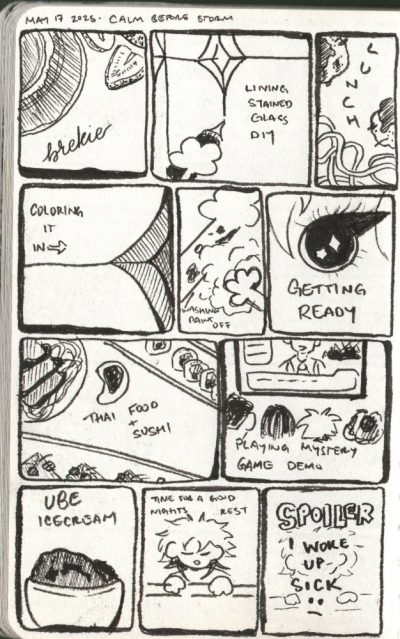 MAY 17 2025 - CALM BEFORE STORM
brekie
LINING
STAINED
GLASS
DIY
LUNCH
COLORING
IT
IN ⇒
WASHING
PAINT
OFF
GETTING
READY
THAI FOOD
+
SUSHI
PLAYING MYSTERY
GAME DEMO
UBE
ICECREAM
TIME FOR A GOOD
NIGHTS REST
SPOILER
I WOKE
UP
SICK